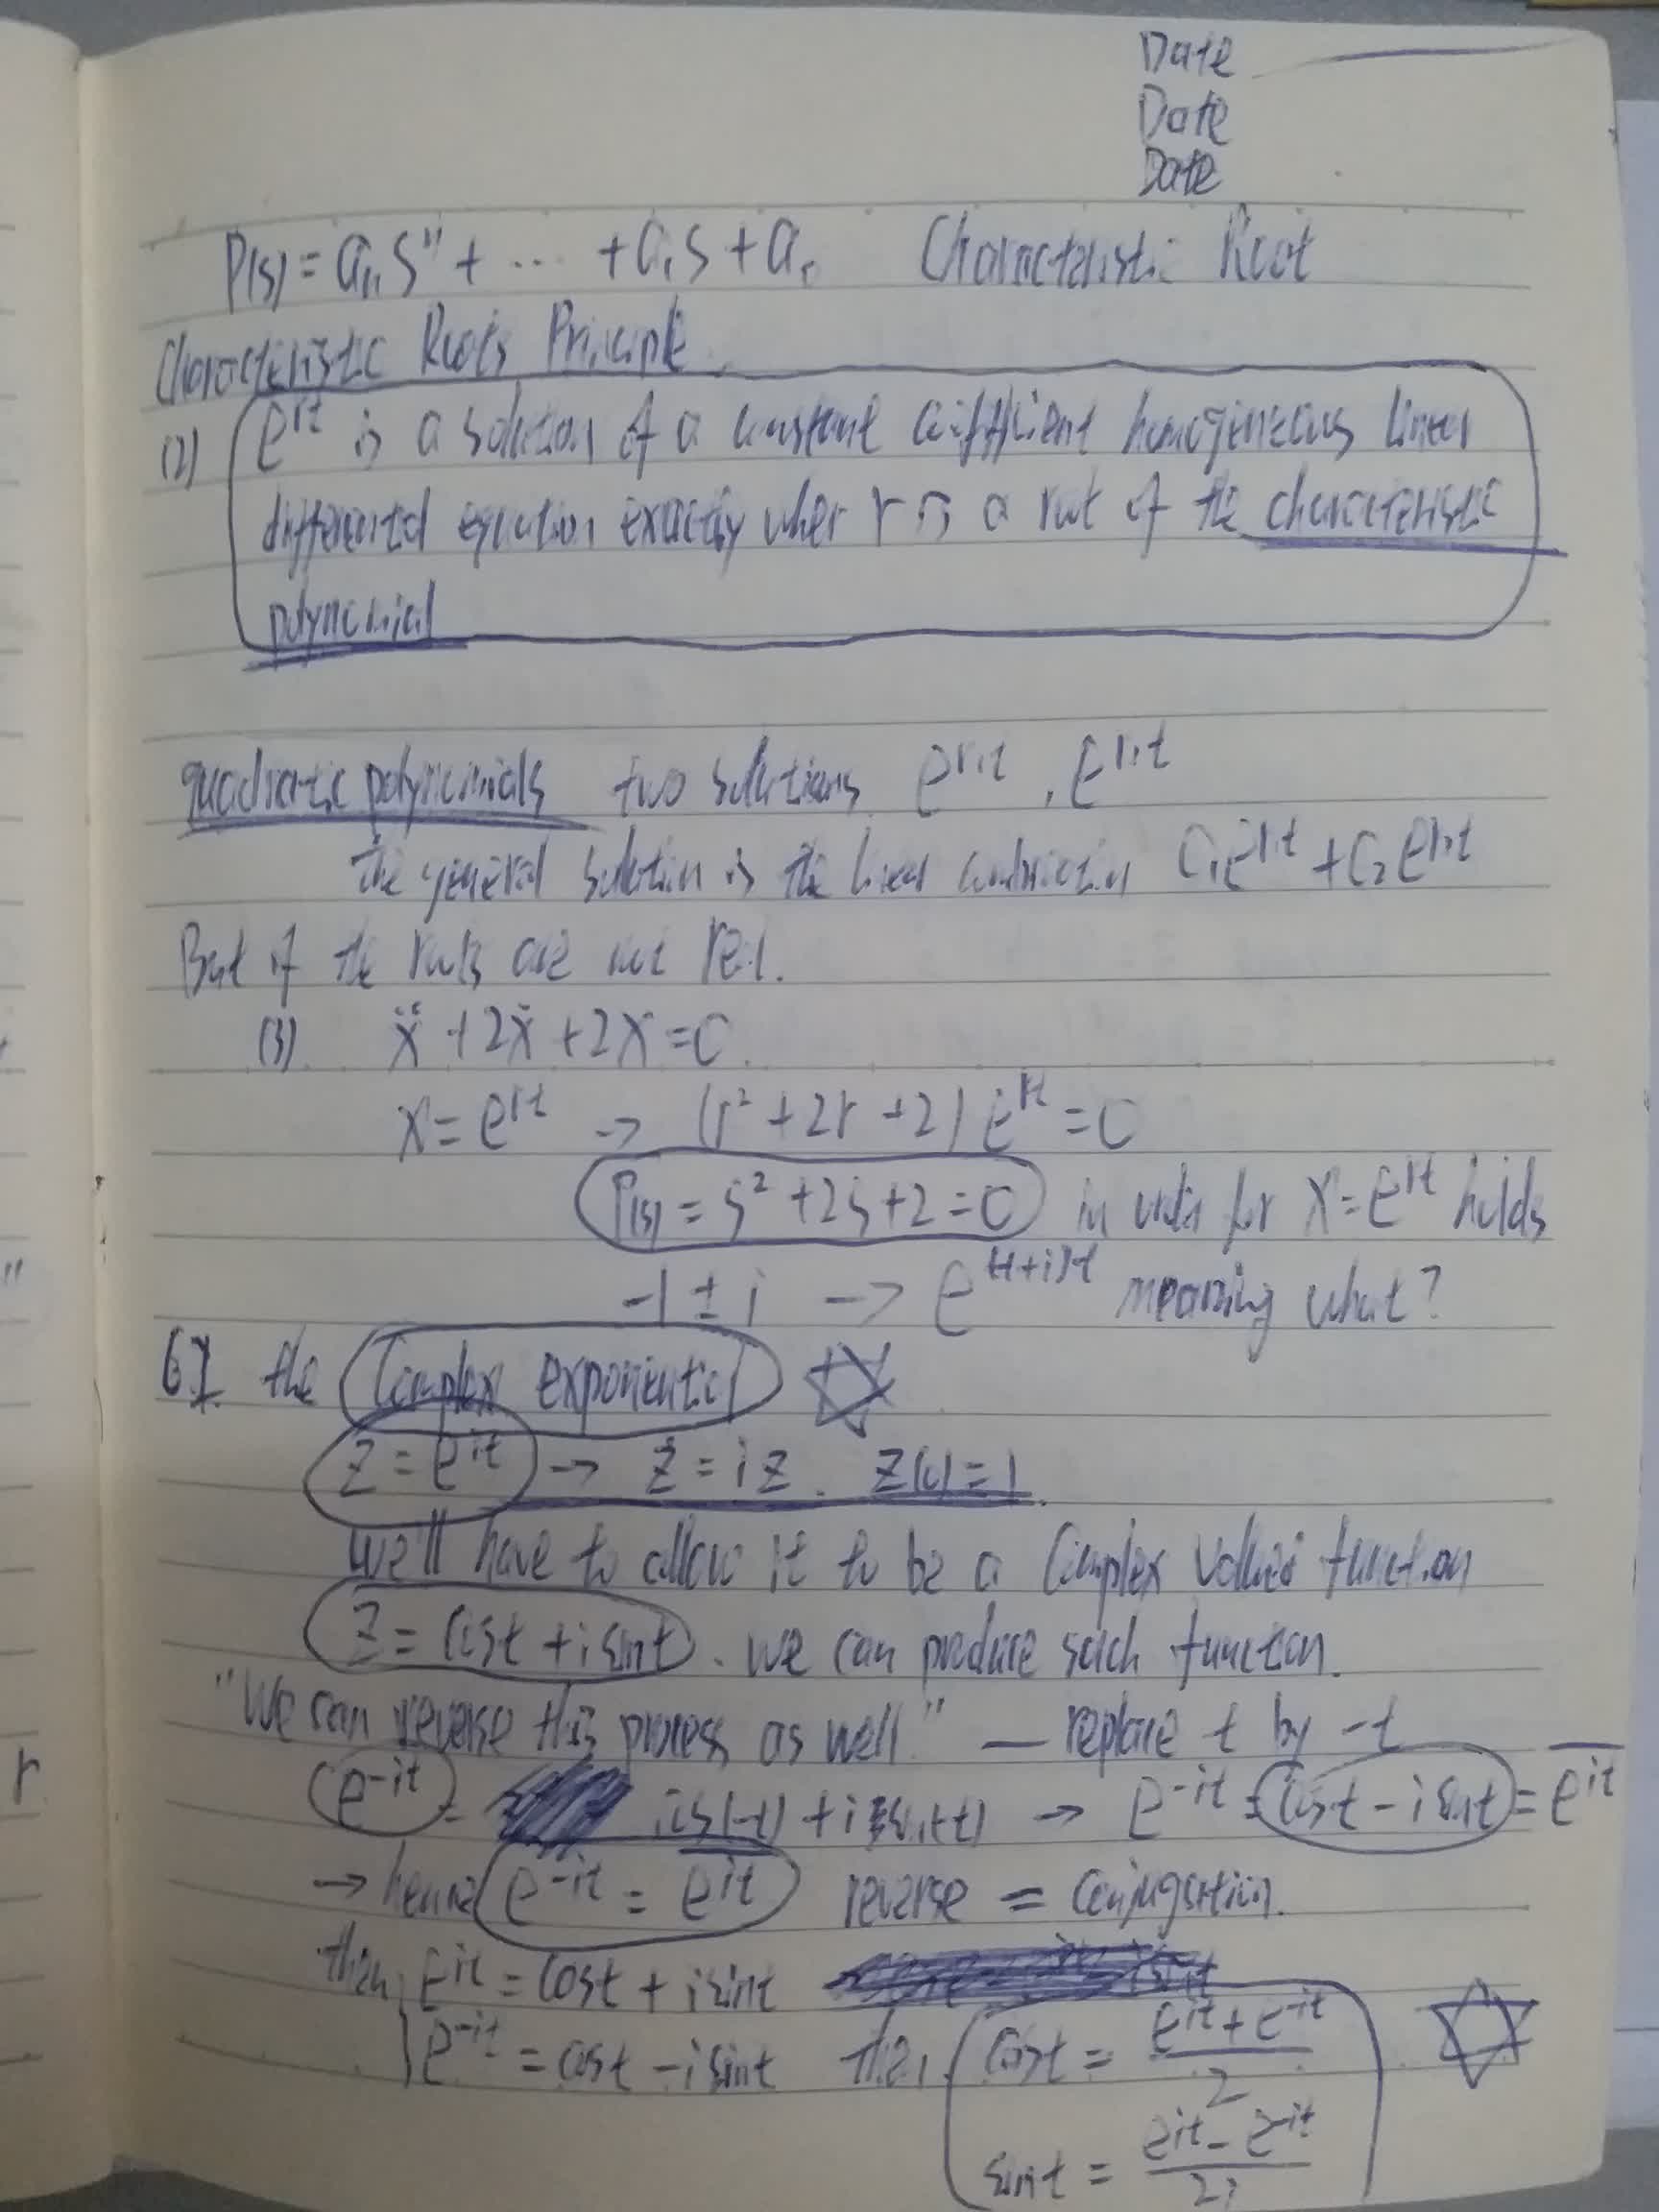 Date
Date
Date
P(s) = aₙsⁿ + ... + a₁s + a₀ Characteristic Root
Characteristic Roots Principle
(2) e^{rt} is a solution of a constant coefficient homogeneous linear
differential equation exactly when r is a root of the characteristic
polynomial
quadratic polynomials two solutions e^{r₁t}, e^{r₂t}
the general solution is the linear combination C₁e^{r₁t} + C₂e^{r₂t}
But if the roots are not real.
(3) ẍ + 2ẋ + 2x = 0.
x = e^{rt} → (r² + 2r + 2) e^{rt} = 0
P(s) = s² + 2s + 2 = 0 in order for x = e^{rt} holds
-1 ± i → e^{(-1+i)t} meaning what?
6.1 the Complex exponential
z = e^{it} → ż = iz. z(0) = 1.
We'll have to allow it to be a Complex valued function
z = cost + i sint. we can produce such function.
"We can reverse this process as well" — replace t by -t
e^{-it} = cos(-t) + i sin(-t) → e^{-it} = cost - i sint = \overline{e^{it}}
→ hence e^{-it} = \overline{e^{it}} reverse = conjugation.
then e^{it} = cost + i sint
e^{-it} = cost - i sint then cost = (e^{it} + e^{-it})/2
sint = (e^{it} - e^{-it})/2i